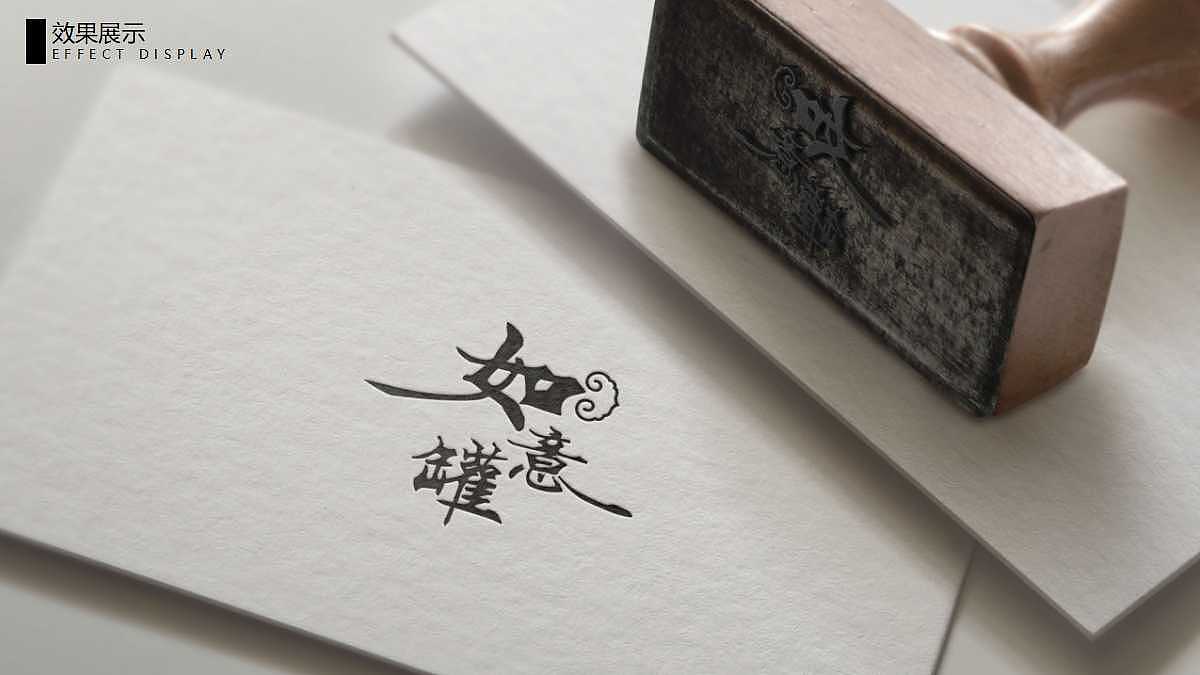 效果展示
EFFECT DISPLAY
如
意
罐